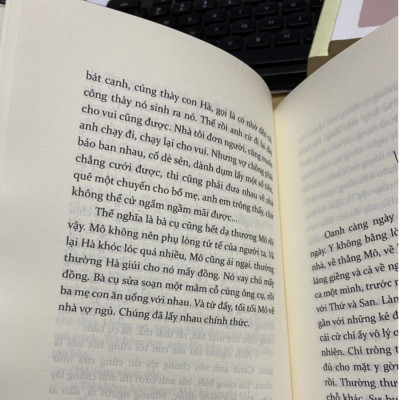 bát canh, cúng thày con Hà, gọi là có nhớ đến
công thày nó sinh ra nó. Thế rồi anh cứ đi lại
cho vui cũng được. Nhà tôi đơn người, cũng muốn
anh chạy đi, chạy lại cho vui. Nhưng vợ chồng phải
bảo ban nhau, cố dè sẻn, dành dụm lấy một số tiền,
chẳng cưới được, thì cũng phải đưa nhau về nhà
quê một chuyến cho bố mẹ, anh em trông thấy, chứ
không thể cứ ngấm ngầm mãi được...
Thế nghĩa là bà cụ cũng hết dạ thương Mô rồi
vậy. Mô không nên phụ lòng tử tế của người ta. Và
lại Hà khóc lóc quá nhiều, Mô cũng ái ngại, thường
thường Hà giúi cho nó mấy đồng. Nó vay chủ mấy
đồng. Bà cụ sửa soạn một mâm cỗ cúng ông cụ, rồi
ba mẹ con ăn uống với nhau. Và từ đấy, tối tối Mô về
nhà vợ ngủ. Chúng đã lấy nhau chính thức.
Oanh càng ngày
ngày. Y không bằng lò
nhà, về thằng Mô, về
láng giềng và cả về ng
ca một mình, trước m
với Thứ và San. Làn
gắn với những kẻ đ
cái cử chỉ ấy vô lý c
nhiên. Chỉ trông t
đủ cho mặt y gờ
thôi. Thường thư
chỗ khác. Sự bu